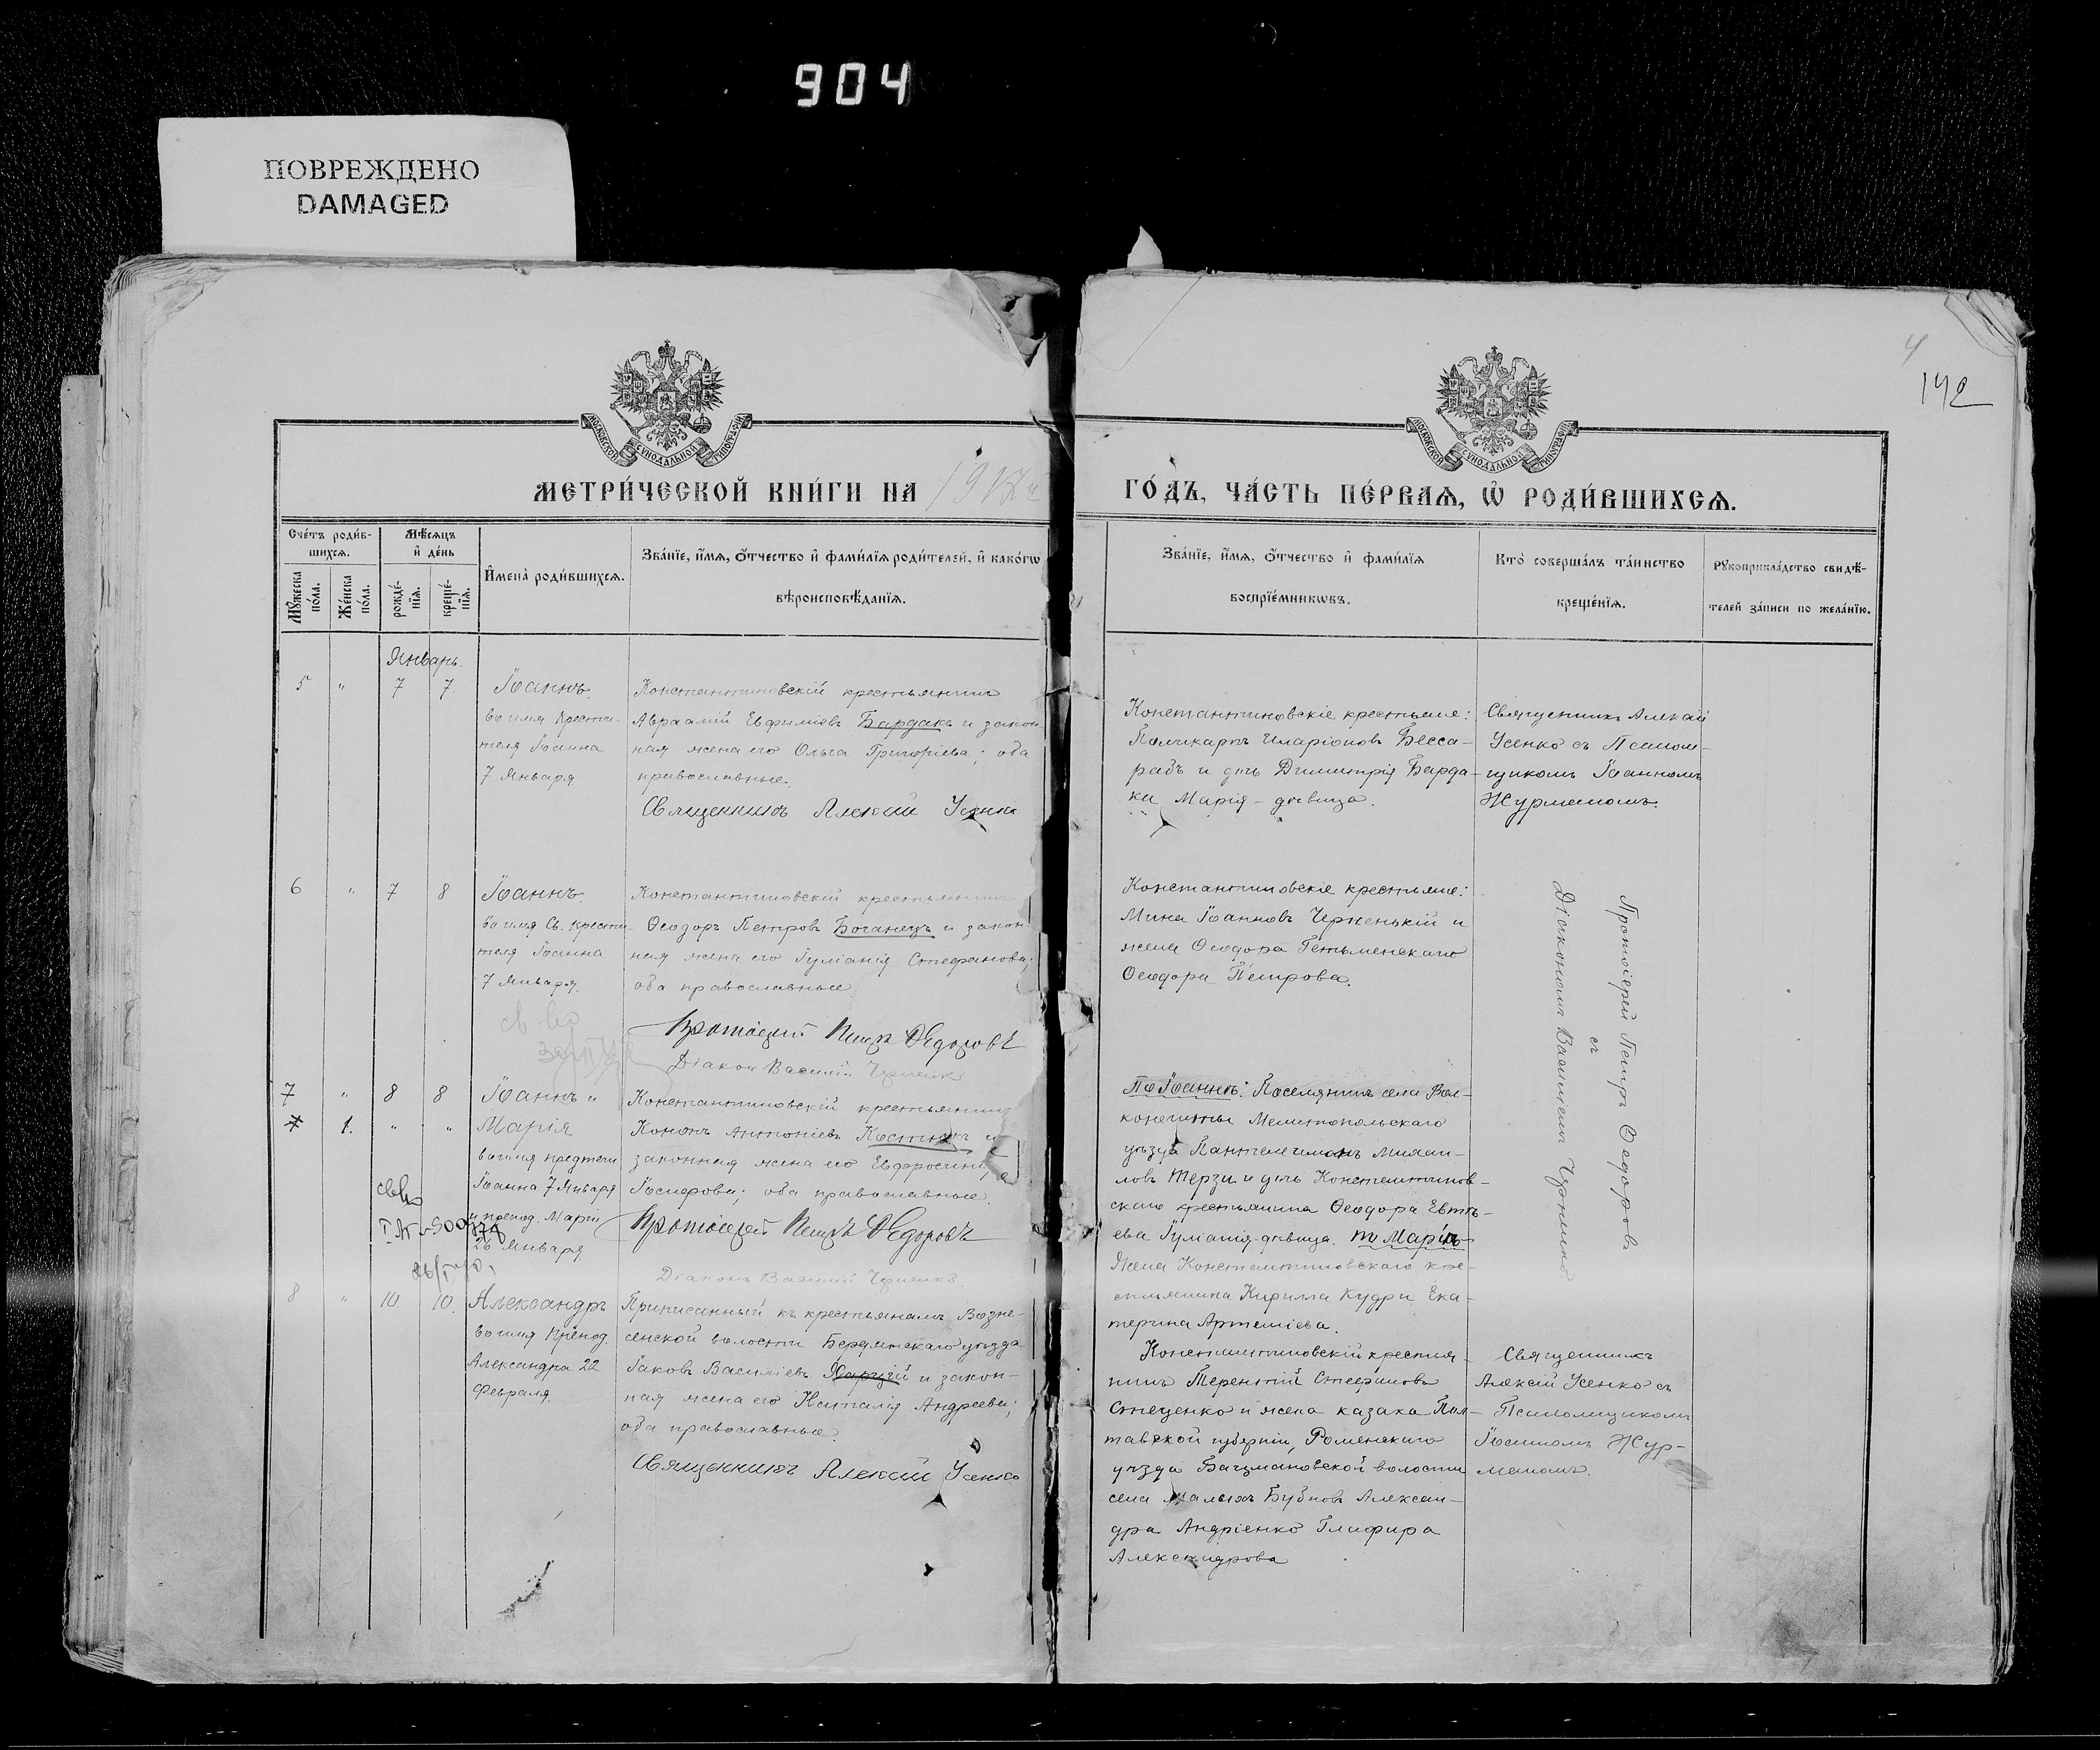 904
ПОВРЕЖДЕНО
DAMAGED
4
142
МОСКОВСКОЙ СУНОДАЛЬНОЙ ТИПОГРАФІИ
МОСКОВСКОЙ СУНОДАЛЬНОЙ ТИПОГРАФІИ
МЕТРИ́ЧЕСКОЙ КНИ́ГИ НА
ГО́ДЪ, ЧА́СТЬ ПЕ́РВАѦ, Ѡ҆ РОДИ́ВШИХСѦ.
Сче́тъ роди́в-
шихсѧ.
Мꙋ́жеска
по́ла.
Же́нска
по́ла.
Мѣ́сѧцъ
и҆ де́нь
рожде́-
нїѧ.
креще́-
нїѧ.
И҆мена̀ роди́вшихсѧ.
Зва́нїе, и҆́мѧ, ѻ҆́тчество и҆ фами́лїѧ роди́телей, и҆ како́гѡ
вѣроисповѣ́данїѧ.
Зва́нїе, и҆́мѧ, ѻ҆́тчество и҆ фами́лїѧ
воспрїе́мникѡвъ.
Кто̀ соверша́лъ та́инство
креще́нїѧ.
Рꙋкоприкла́дство свидѣ́-
телей за́писи по жела́нїю.
Январь.
5 " 7 7. Іоаннъ
во имя Крести-
теля Іоанна
7 Января
Константиновскій крестьянинъ
Авраамій Евфиміевъ Бардакъ и закон
ная жена его Ольга Григоріева; оба
православные.
Священникъ Алексій Усенко
Константиновскіе крестьяне:
Поликарпъ Иларіоновъ Бесса-
рабъ и дочь Димитрія Барда-
ки Марія - дѣвица.
Священникъ Алексій
Усенко съ Псалом-
щикомъ Іоанномъ
Журманомъ.
6 " 7 8 Іоаннъ
во имя Св. Крести-
теля Іоанна
7 Января.
Константиновскій крестьянинъ
Ѳеодоръ Петровъ Боганецъ и закон-
ная жена его Іуліанія Стефанова;
оба православные.
Протоіерей Петръ Ѳедоровъ
Діаконъ Василій Черненко
Константиновскіе крестьяне:
Мина Іоанновъ Черненькій и
жена Ѳеодора Гетьменскаго
Ѳеодора Петрова.
Протоіерей Петръ Ѳедоровъ
съ
Діакономъ Василіемъ Черненко
7 " 8 8 Іоаннъ и
1. " " Марія
во имя предтечи
Іоанна 7 Января
и препод. Маріи
26 Января
Константиновскій крестьянинъ
Кононъ Антоніевъ Костюкъ и
законная жена его Евфросинія
Іосифова; оба православные.
Протоіерей Петръ Ѳедоровъ
Діаконъ Василій Черненко
По Іоаннѣ: Поселянинъ села Вол-
конешты Мелитопольскаго
уѣзда Пантелеимонъ Михаи-
ловъ Терзи и дочь Константинов-
скаго крестьянина Ѳеодора Евтѣ-
ева Іуліанія-дѣвица. по Маріи-
Жена Константиновскаго кре-
стьянина Кирилла Кудри Ека-
терина Артеміева.
8 " 10. 10. Александръ
во имя Препод.
Александра 22
Февраля.
Приписанный къ крестьянамъ Возне-
сенской волости Бердянскаго уѣзда
Іаковъ Василіевъ и закон-
ная жена его Наталія Андреева;
оба православные.
Священникъ Алексій Усенко
Константиновскій крестья-
нинъ Терентій Стефановъ
Стеценко и жена казака Пол-
тавской губерніи, Роменскаго
уѣзда Бацмановской волости
села Малыхъ Бубновъ Алексан-
дра Андріенко Глафира
Александрова
Священникъ
Алексій Усенко съ
Псаломщикомъ
Іоанномъ Жур-
маномъ.